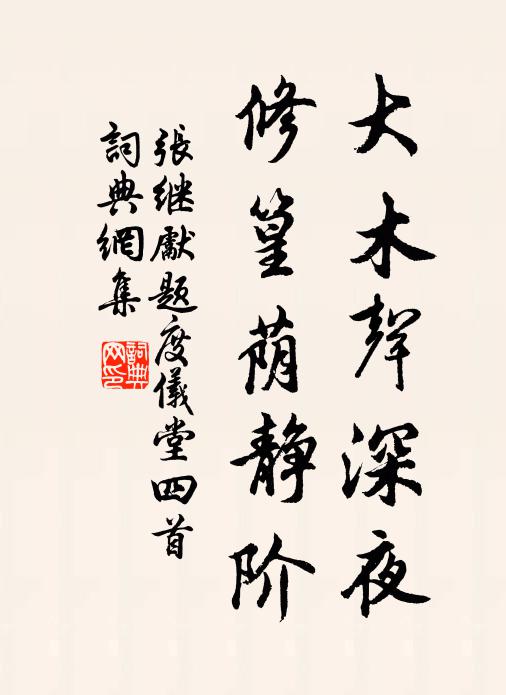 大木聲深夜
修篁荫静阶
張继獻题度儀堂四首
詞典網集
詞典网印